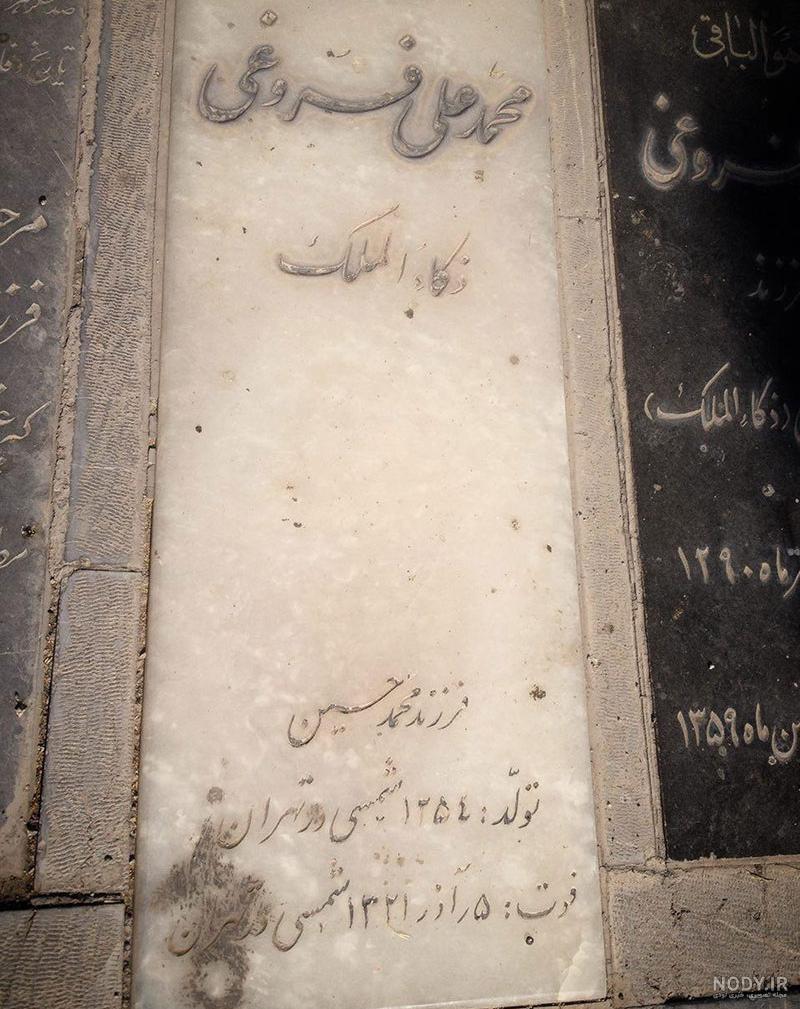 محمد علی فروغی
ذکاء الملک
فرزند محمد حسین
تولّد: ۱۲۵٤ شمسی در تهران
فوت: ۵ آذر ۱۳۲۱ شمسی در تهران
هو الباقی
فروغی
فرزند
(ذکاء الملک)
ماه ۱۲۹۰
ماه ۱۳۵۹
NODY.IR